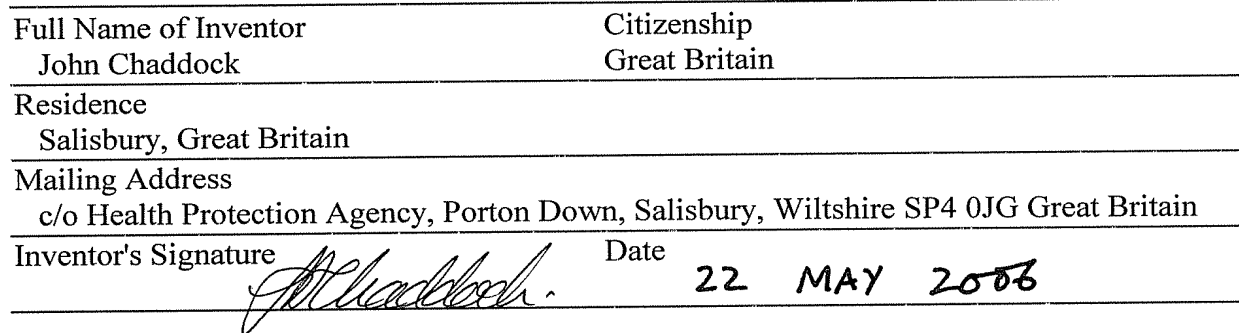 Full Name of Inventor Citizenship
John Chaddock Great Britain
Residence
Salisbury, Great Britain
Mailing Address
c/o Health Protection Agency, Porton Down, Salisbury, Wiltshire SP4 0JG Great Britain
Inventor's Signature Date 22 MAY 2006